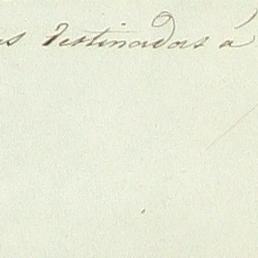 es destinadas á